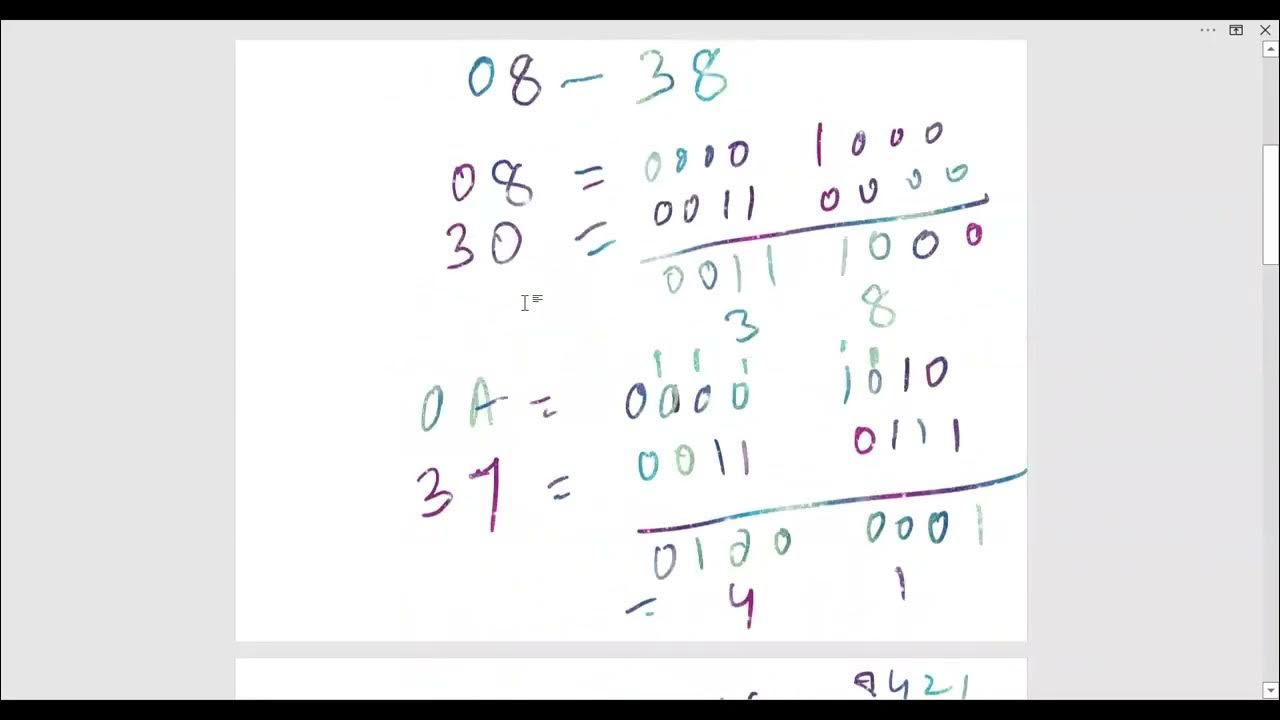 08 - 38
08 = 0000 1000
30 = 0011 0000
0011 1000
3 8
1 1 1 1 1
0A = 0000 1010
37 = 0011 0111
0100 0001
= 4 1
8421